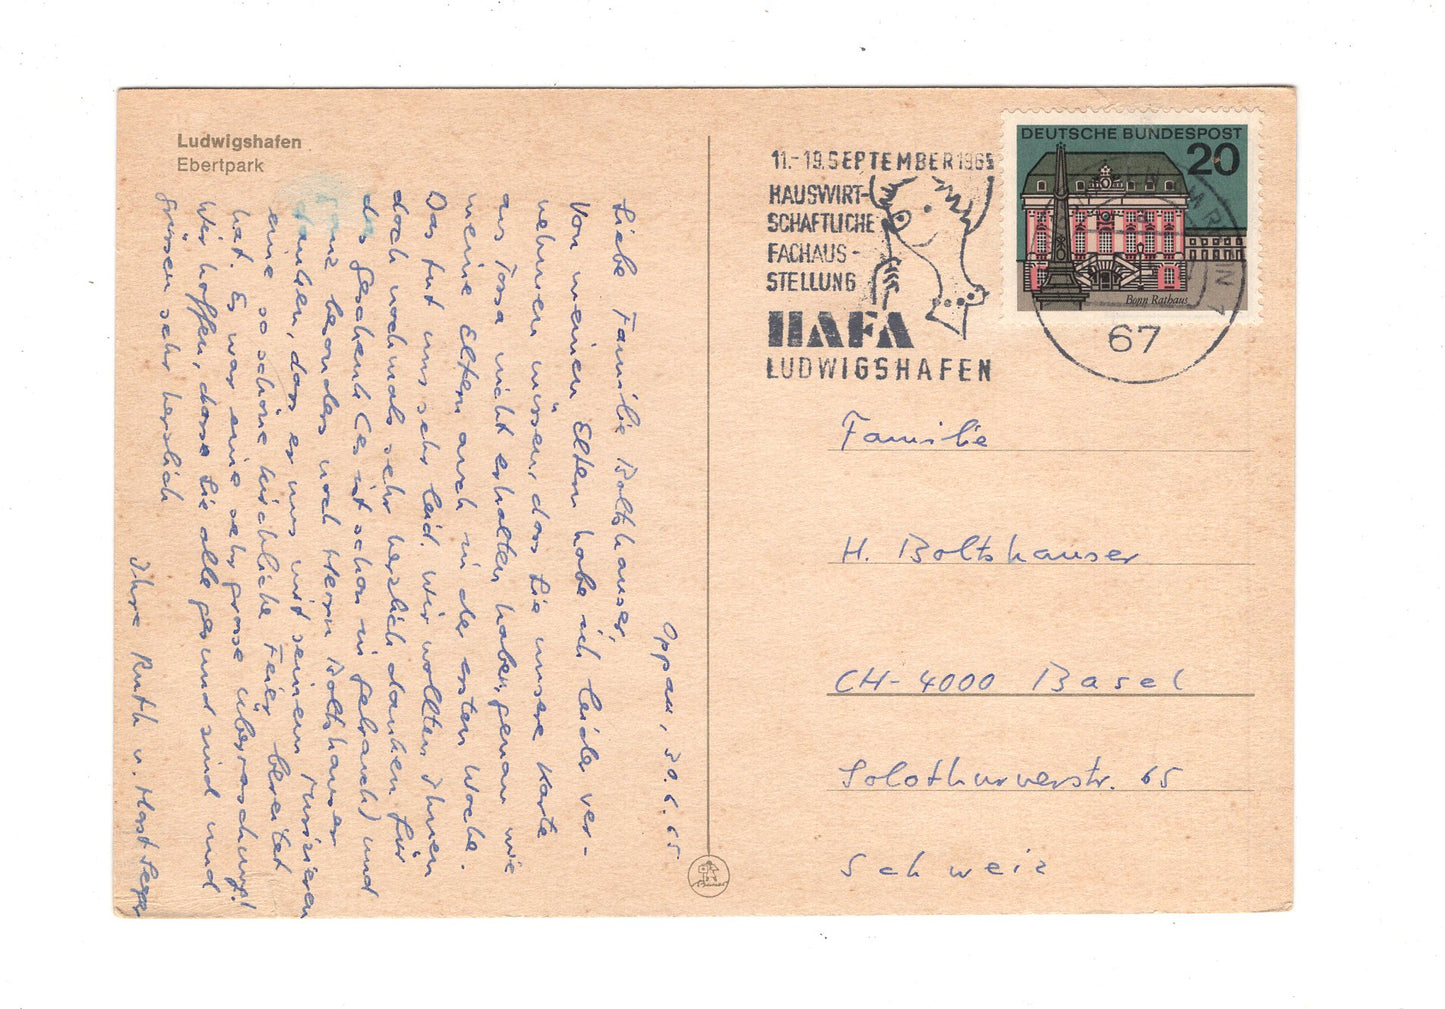 Ludwigshafen
Ebertpark
Oppau, 30.6.65
Liebe Familie Boltshauser,
Von meinen Eltern habe ich leider ver-
nehmen müssen, dass Sie unsere Karte
aus Tossa nicht erhalten haben, genau wie
meine Eltern auch in der ersten Woche.
Das tut uns sehr leid. Wir wollten Ihnen
doch nochmals sehr herzlich danken für
das Geschenk (es ist schon in Gebrauch) und
ganz besonders noch Herrn Boltshauser
danken, dass er uns mit seinem Musizieren
eine so schöne kirchliche Feier bereitet
hat. Es war eine sehr grosse Überraschung!
Wir hoffen, dass Sie alle gesund sind und
grüssen sehr herzlich
Ihre Ruth u. Horst
11.-19. SEPTEMBER 1965
HAUSWIRT-
SCHAFTLICHE
FACHAUS-
STELLUNG
HAFA
LUDWIGSHAFEN
DEUTSCHE BUNDESPOST
20
Bonn Rathaus
67
Familie
H. Boltshauser
CH-4000 Basel
Solothurnerstr. 65
Schweiz